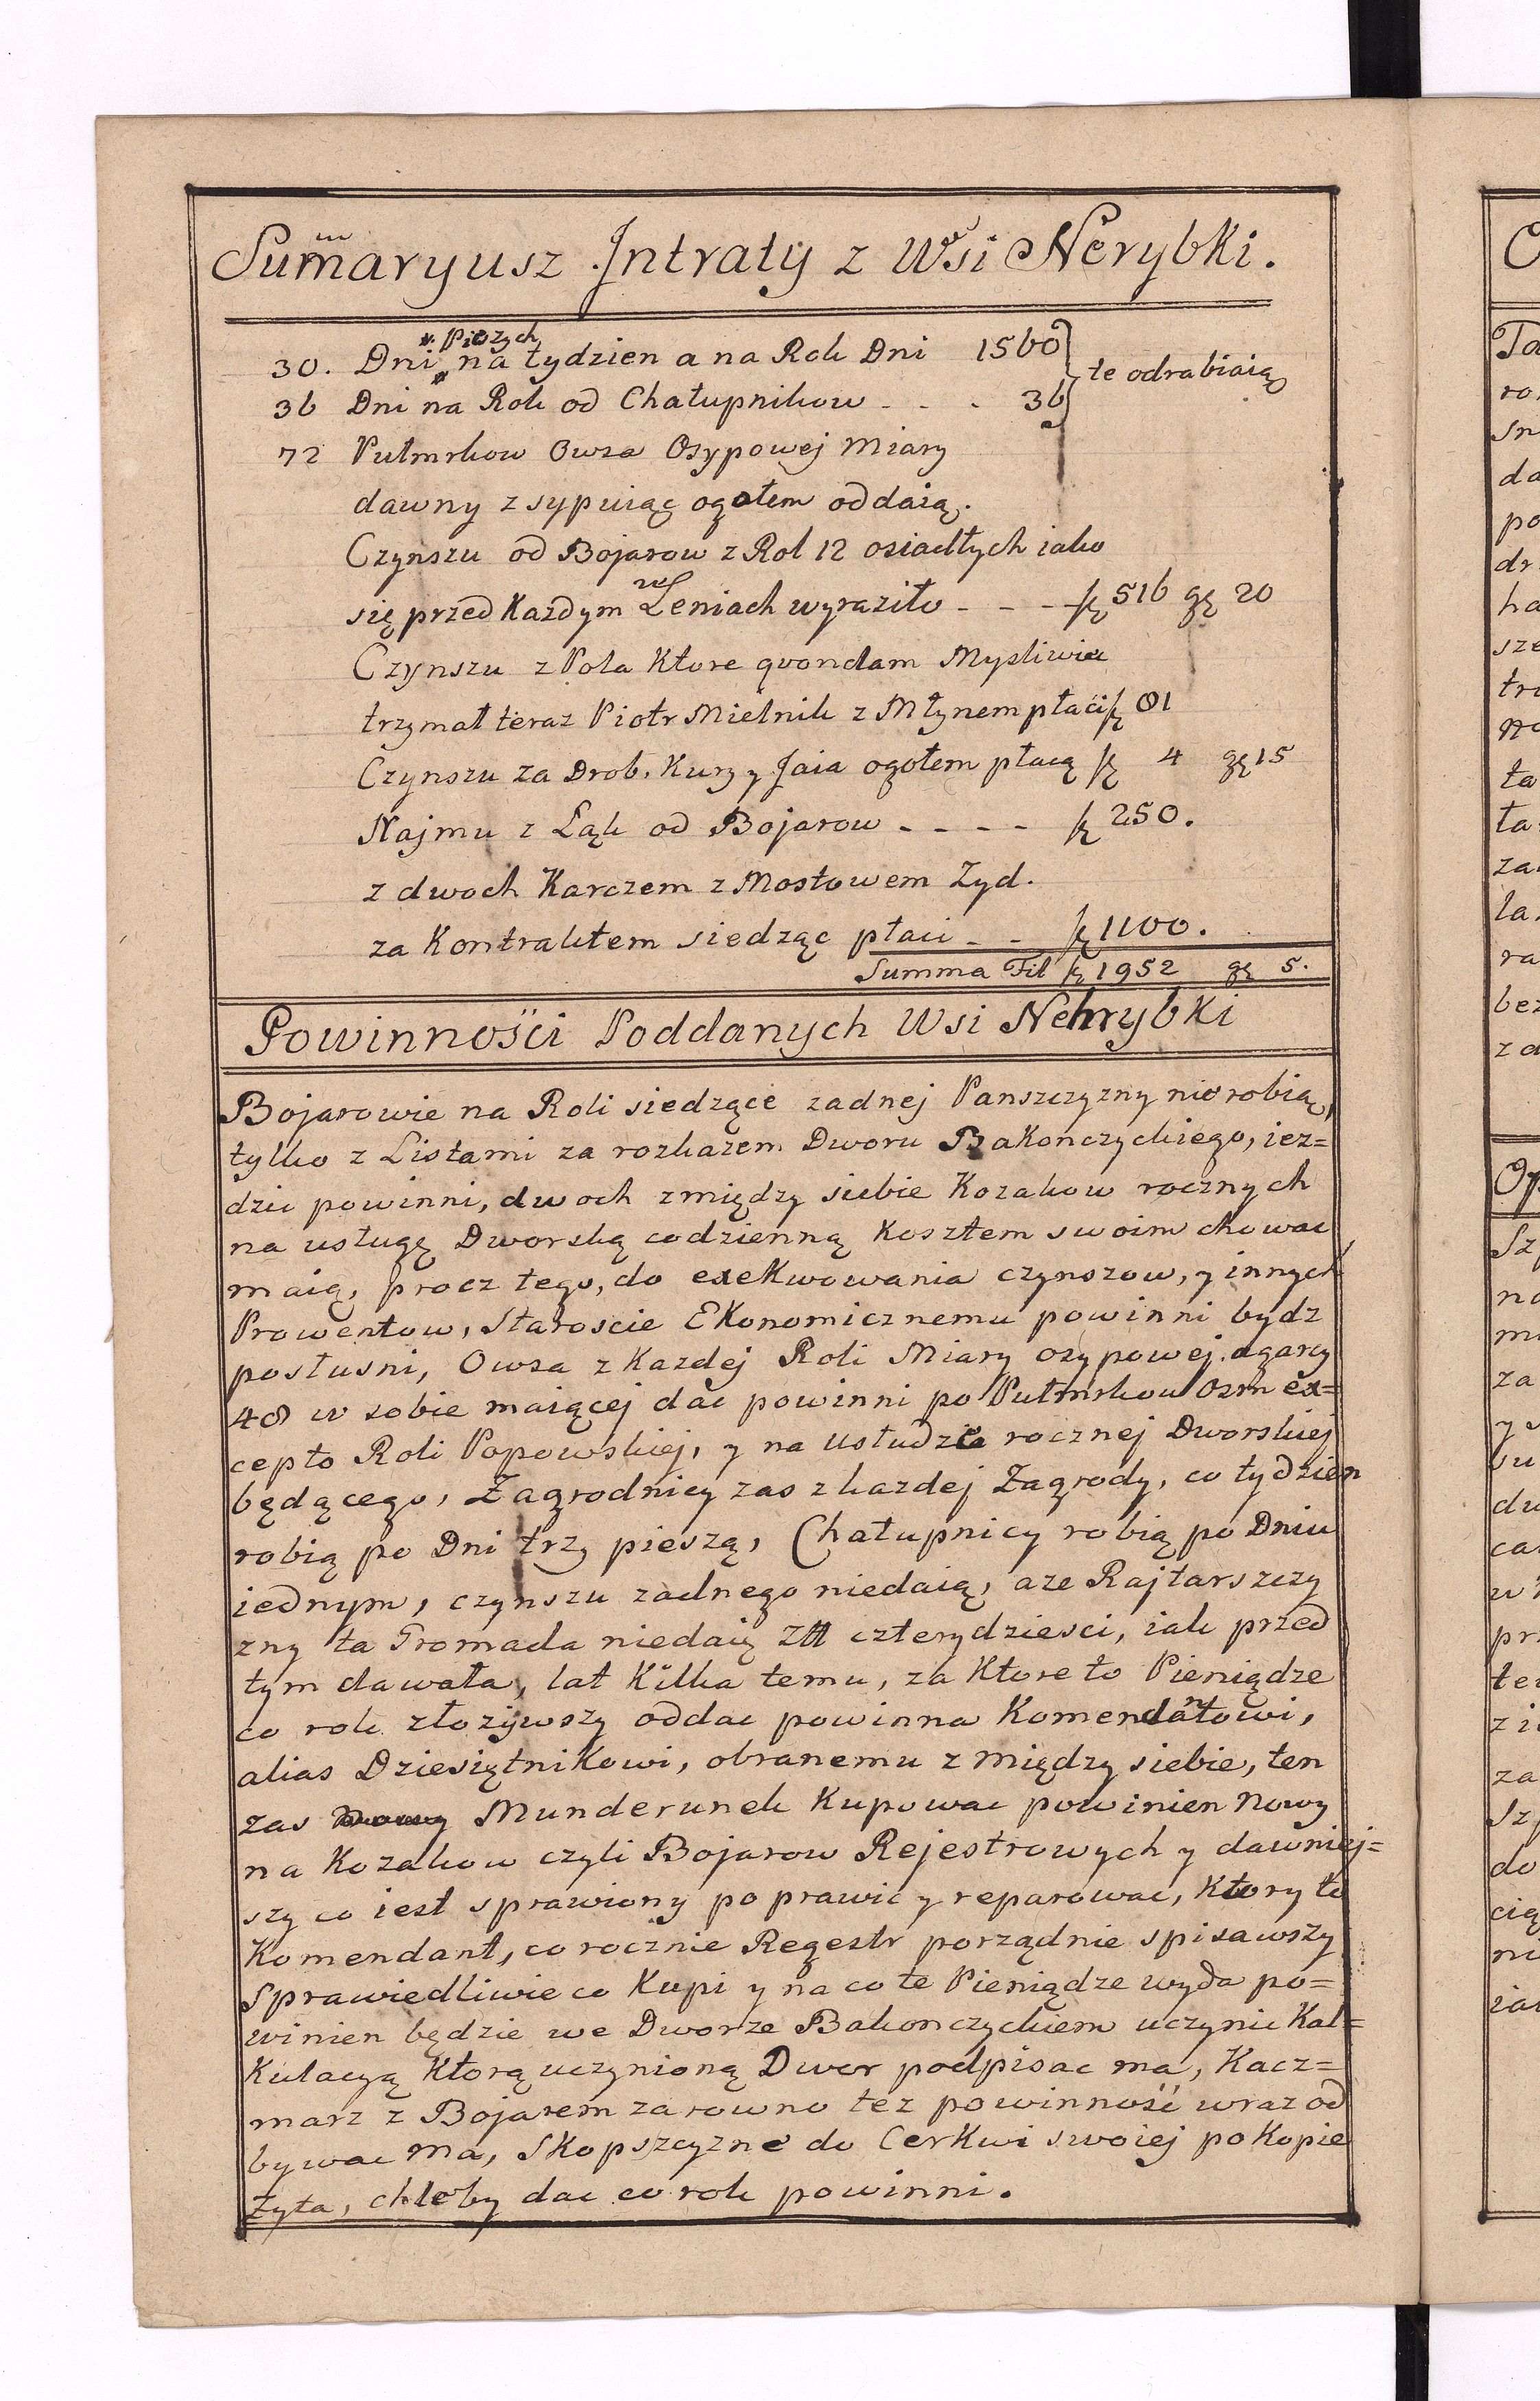 Sum̃aryusz Intraty z Wsi Nerybki.
30. Dni Pieszych na tydzien a na Rok Dni 1560
te odrabiaią
36 Dni na Rok od Chałupnikow - - - 36
72 Pułmrkow Owsa Osypowej Miary
dawny zsypuiąc ogołem oddaią.
Czynszu od Bojarow z Rol 12 osiadłych iako
się przed Każdym w Leniach wyraziło - - - 516 gę 20
Czynszu z Pola Ktore qvondam Mysliwiec
trzymał teraz Piotr Mielnik z Młynem płaci 81
Czynszu za Drob. Kury y Jaia ogołem płacą 4 gę 15
Najmu z Ląk od Bojarow - - - - 250.
z dwoch Karczem z Mostowem Zyd.
za Kontraktem siedząc płaci - - 1100.
Summa Fil 1952 gę 5.
Powinności Poddanych Wsi Nehrybki
Bojarowie na Roli siedzące zadnej Panszczyzny nie robią,
tylko z Listami za rozkazem Dworu Bakonczyckiego, iez=
dzic powinni, dwoch zmiędzy siebie Kozakow rocznych
na usługę Dworską codzienną Kosztem swoim chowac
maią, procz tego, do exekwowania czynszow, y innych
Prowentow, Staroscie Ekonomicznemu powinni bydz
posłusni, Owsa z Kazdej Roli Miary osypowej. agarcy
48 w sobie maiącej dac powinni po Pułmrkow Osm ex=
cepto Roli Popowskiej, y na Usłudze rocznej Dworskiej
będącego, Zagrodnicy zas z kazdej Zagrody, co tydzien
robią po Dni trzy pieszą, Chałupnicy robią po Dniu
iednym, czynszu zadnego niedaią, aze Rajtarszczy
zny ta Gromada niedaię Złł czterydziesci, iak przed
tym dawała, lat Kilka temu, za Ktore to Pieniądze
co rok złozywszy oddac powinna Komendantowi,
alias Dziesiętnikowi, obranemu z między siebie, ten
zas Munderunek Kupowac powinien Nowy
na Kozakow czyli Bojarow Rejestrowych y dawniej=
szy co iest sprawiony poprawic y reparowac, Ktory to
Komendant, co rocznie Regestr porządnie spisawszy
Sprawiedliwie co Kupi y na co te Pieniądze wyda po=
winien będzie we Dworze Bakonczyckiem uczynic Kal=
Kulacyą Ktorą uczynioną Dwor podpisac ma, Kacz=
marz z Bojarem zarowno tez powinność wraz od
bywac ma, Skopszczyzne do Cerkwi swoiej po Kopie
żyta, chleby dac co rok powinni.